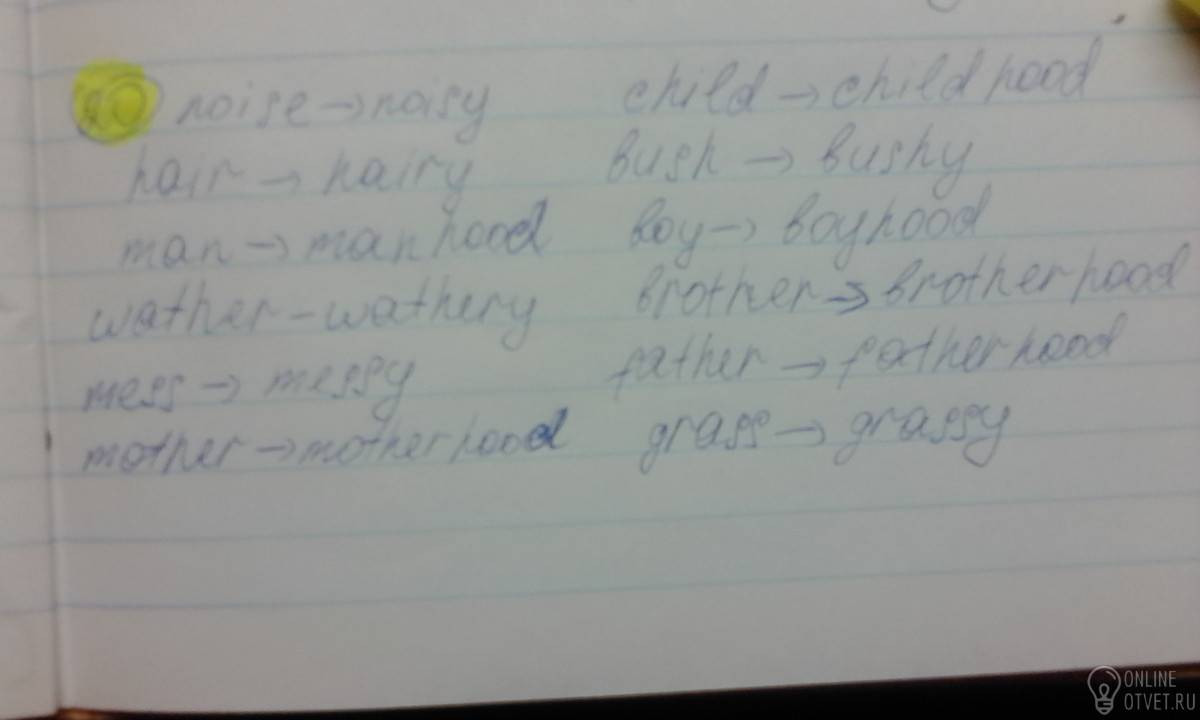 20 noise → noisy child → childhood
hair → hairy bush → bushy
man → manhood boy → boyhood
wather - wathery brother → brotherhood
mess → messy father → fatherhood
mother → motherhood grass → grassy
ONLINE
OTVET.RU